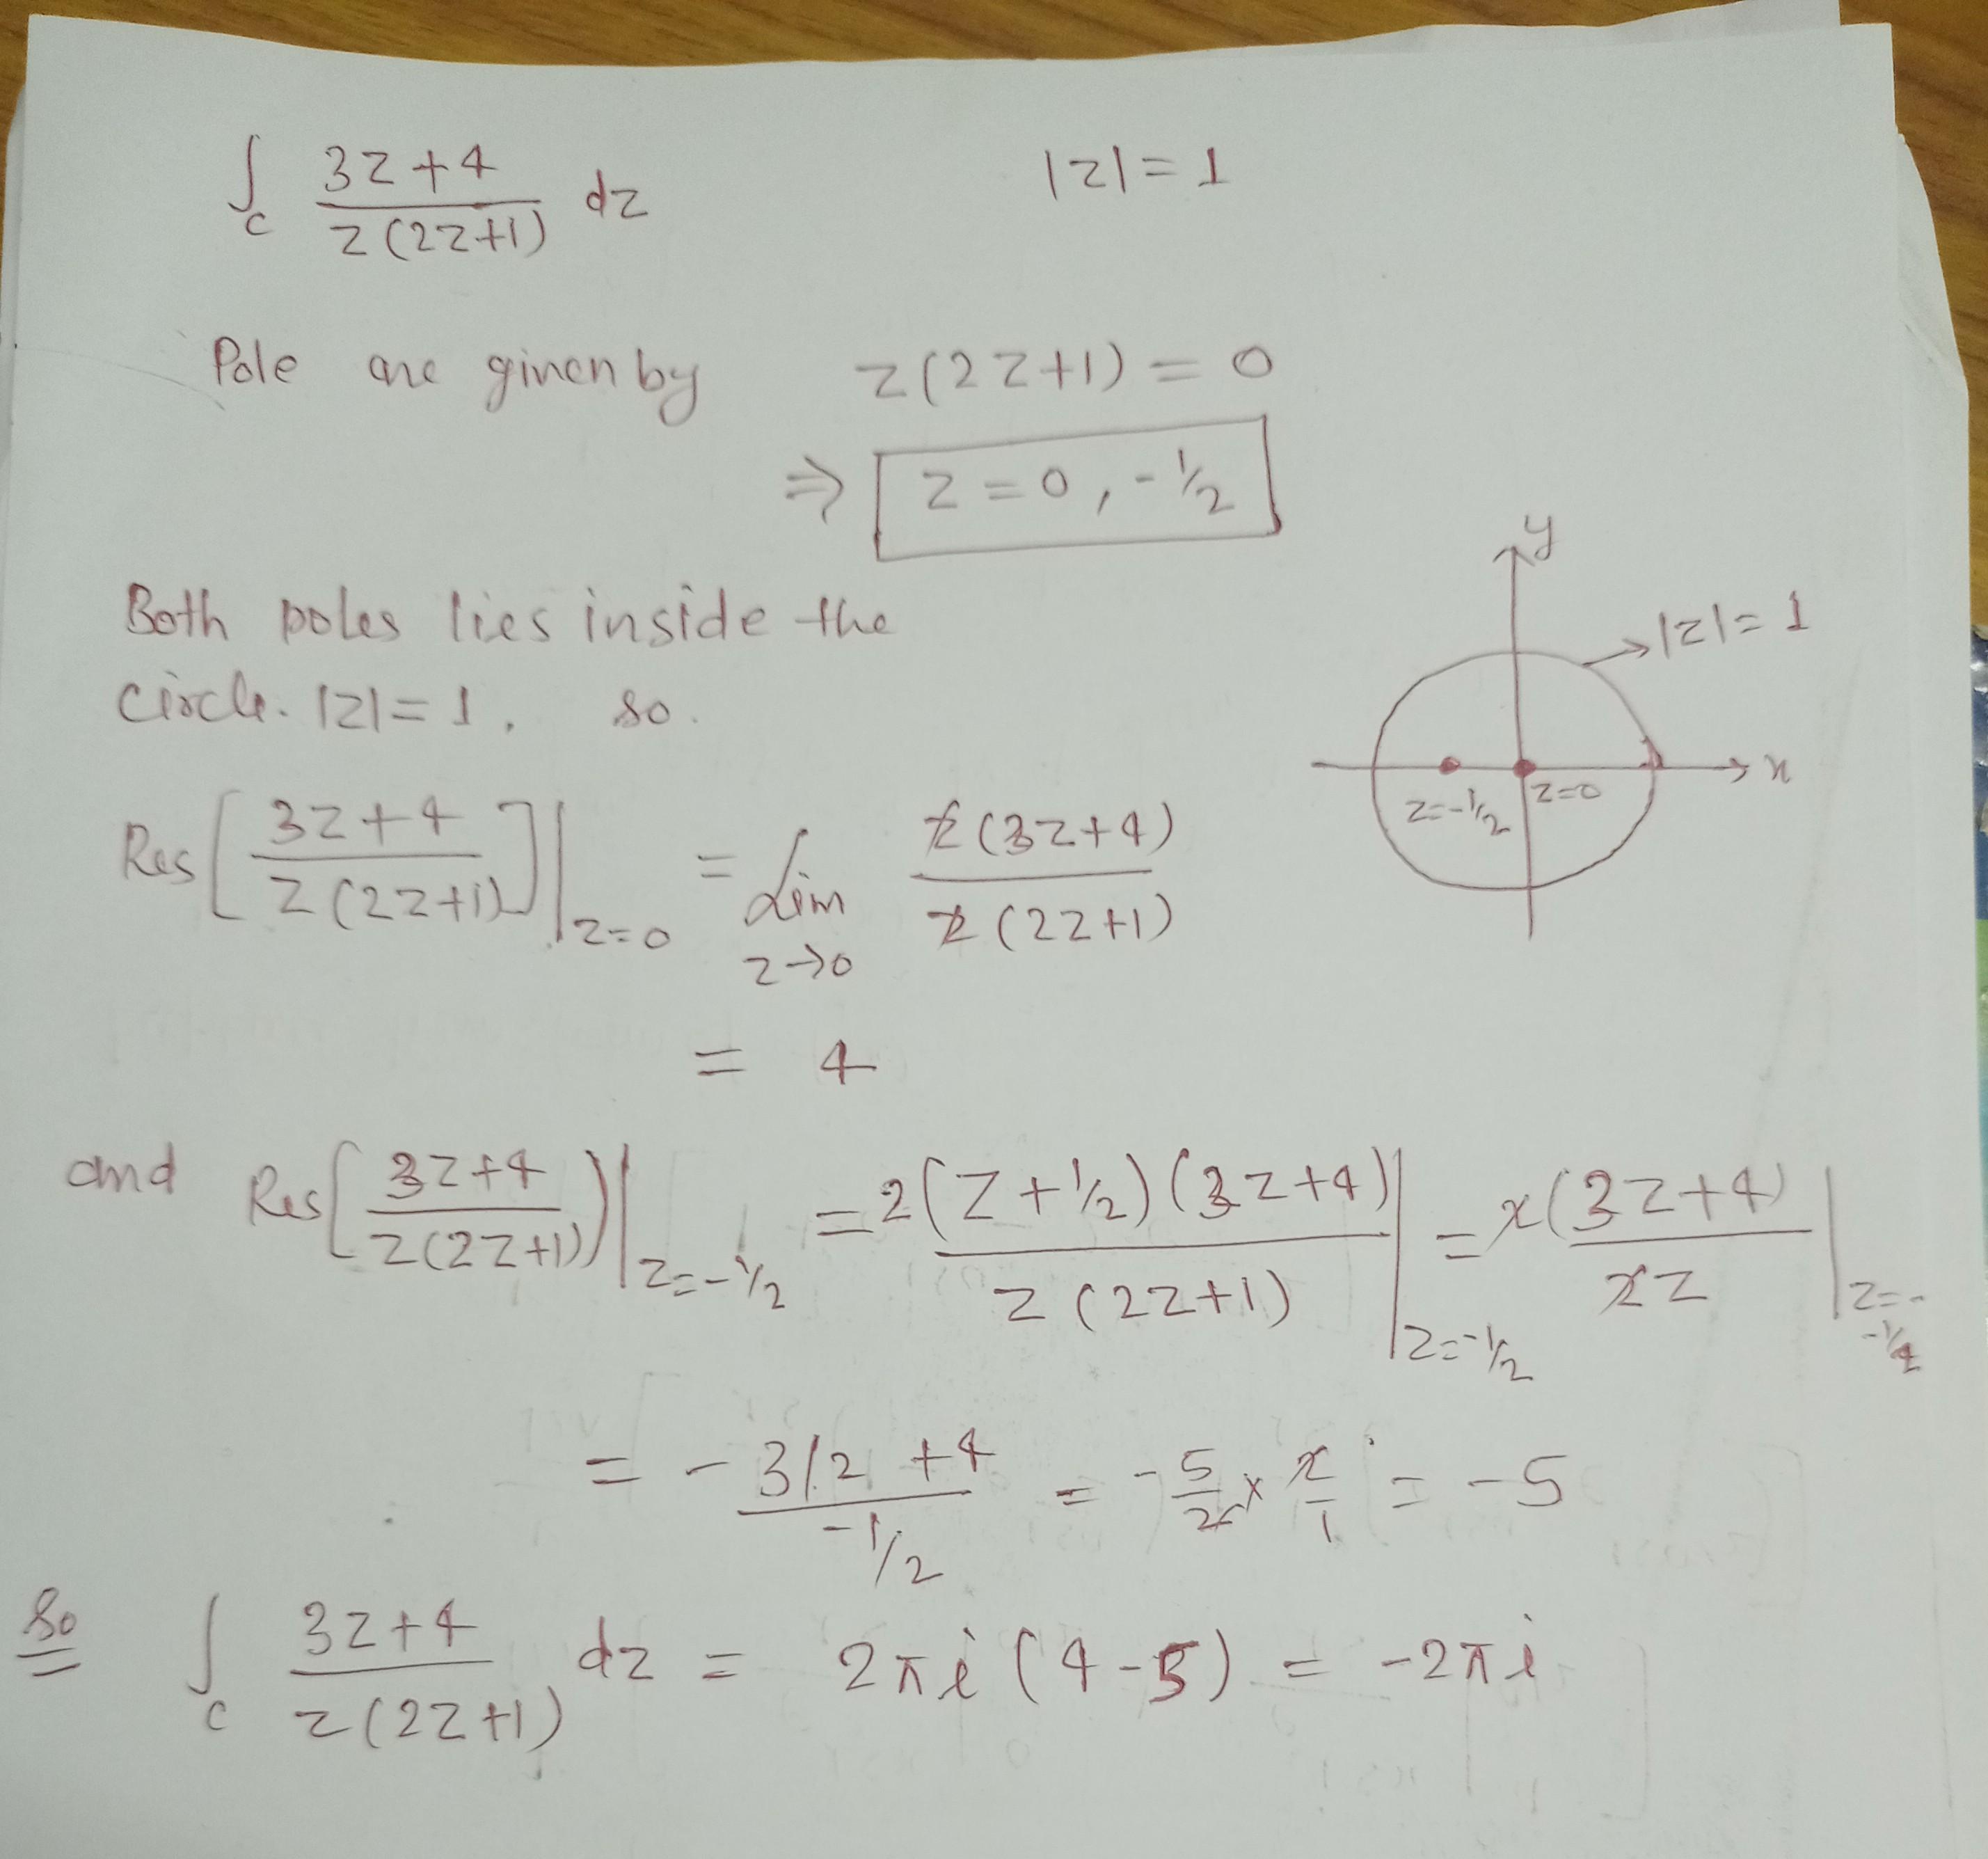 ∫_C (3z+4)/(z(2z+1)) dz |z|=1
Pole are given by z(2z+1)=0
⇒ z=0, -1/2
Both poles lies inside the
circle. |z|=1, so.
y
|z|=1
x
z=-1/2 z=0
Res[(3z+4)/(z(2z+1))]|_{z=0} = Lim_{z→0} z(3z+4)/(z(2z+1))
= 4
and Res[(3z+4)/(z(2z+1))]|_{z=-1/2} = 2(z+1/2)(3z+4)/(z(2z+1))|_{z=-1/2} = 2(3z+4)/(2z)|_{z=--1/2}
= (-3/2+4)/(-1/2) = -5/2 × 2/1 = -5
So ∫_C (3z+4)/(z(2z+1)) dz = 2πi(4-5) = -2πi